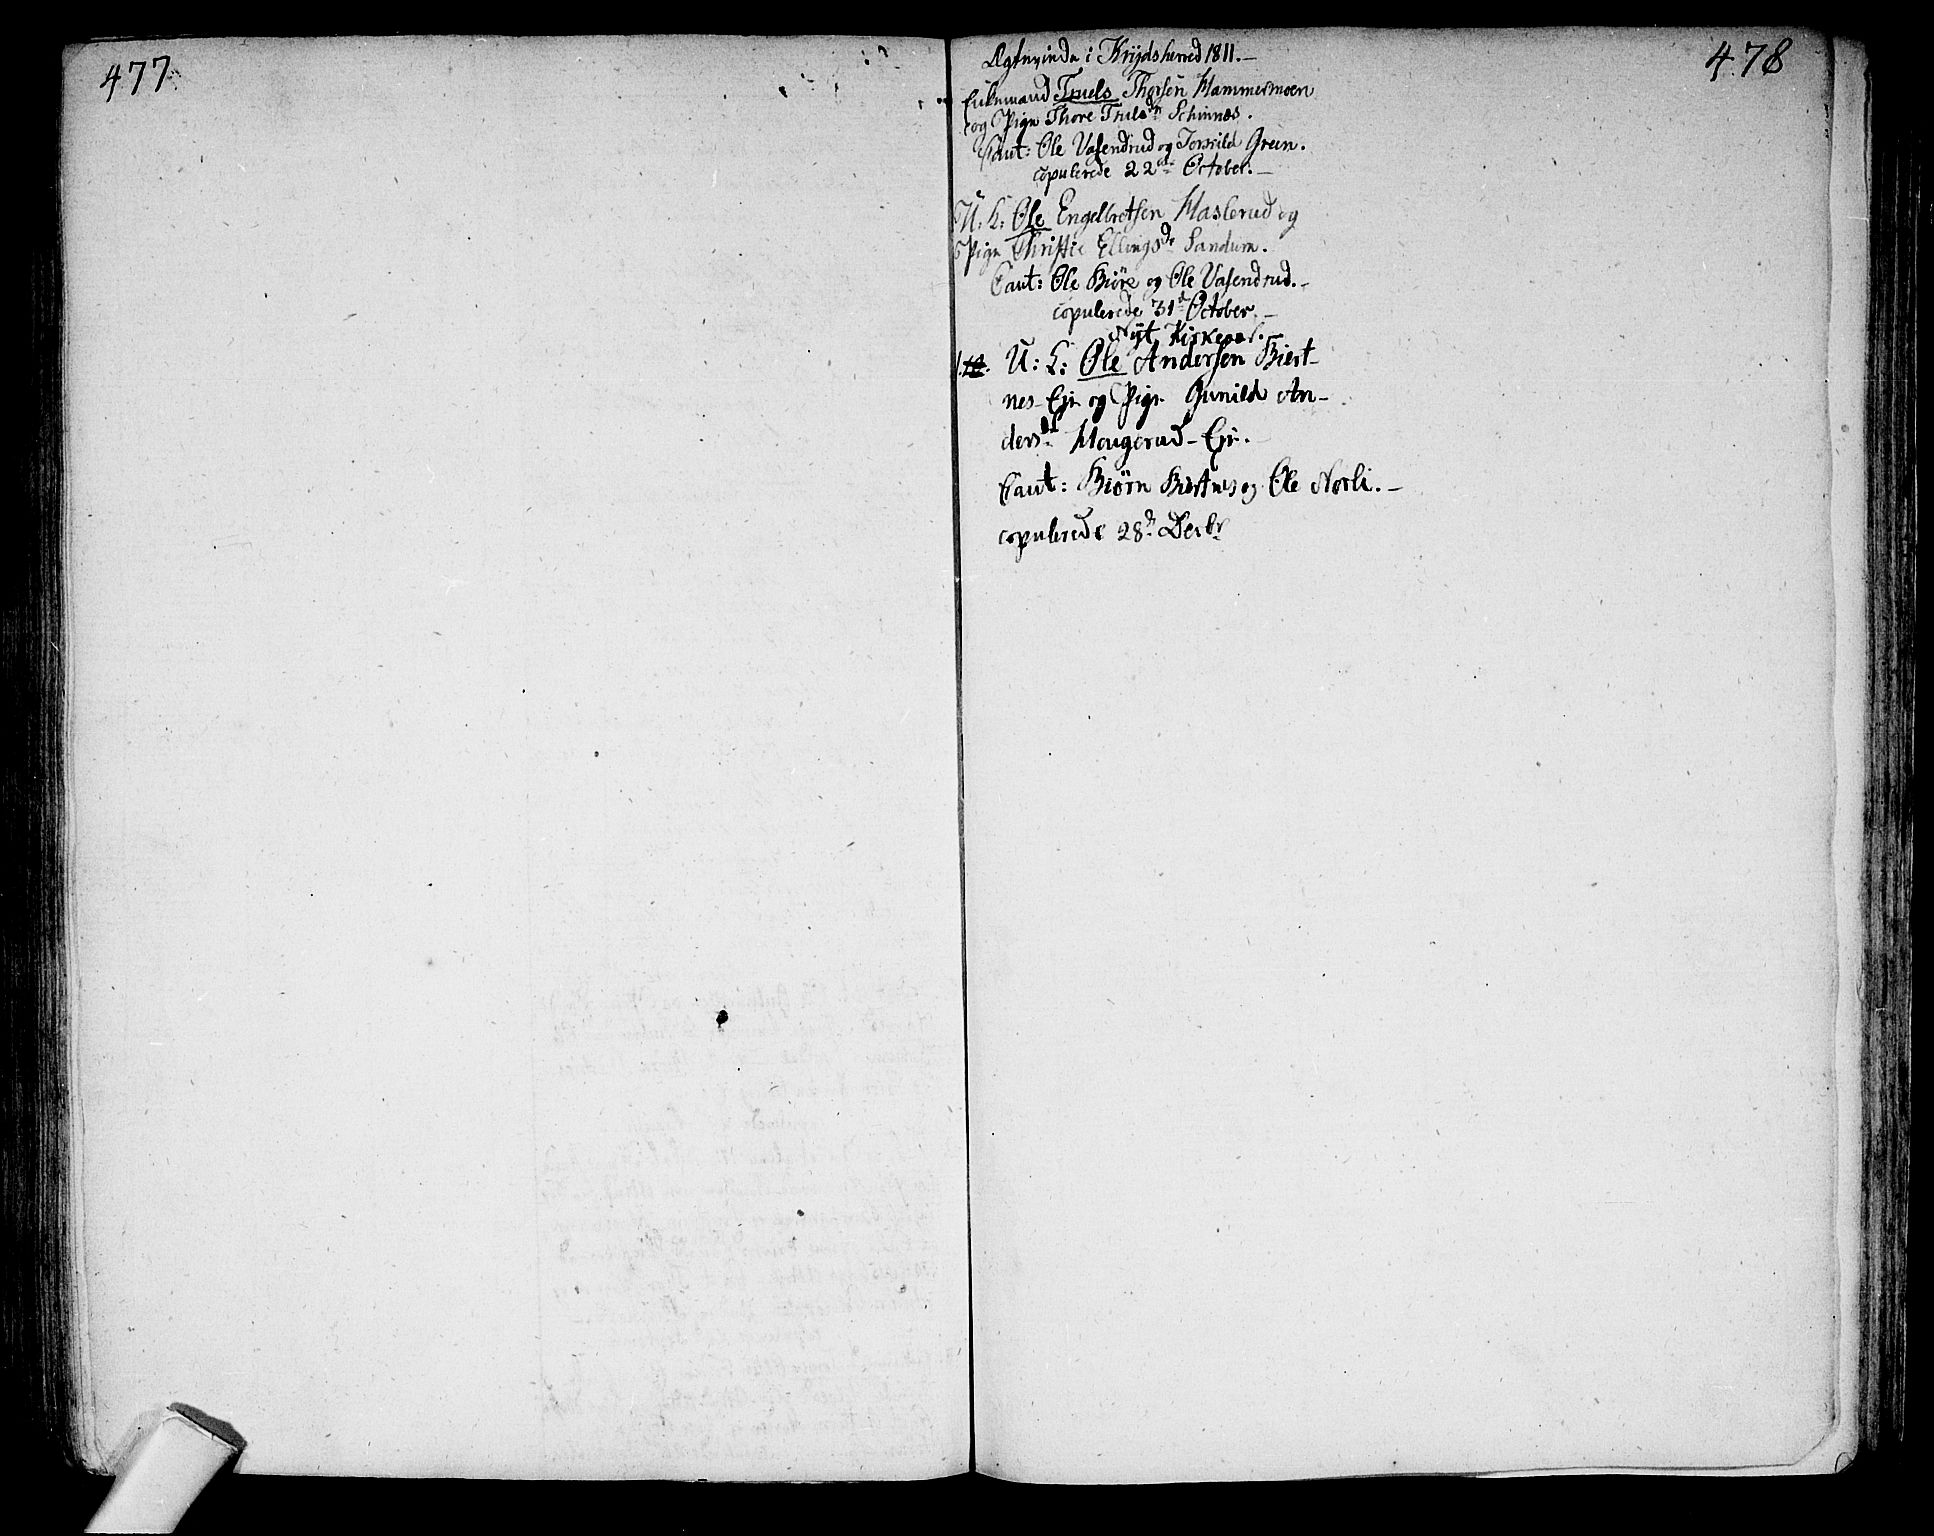 477
478
Ægteviede i Krydsherred 1811.-
Enkemand Truels Thorsen Hammermoen
og Pige Thore Truls dr Schinnæs.
Caut: Ole Vasendrud og Torkild Green.
copulerede 22de October.-
U: K: Ole Engelbretsen Haslerud og
Pige Christie Ellingsdr Sandum.
Caut: Ole Biöre og Ole Vasendrud.-
copulerede 31d October.-
Nyt Kirkeaar.
1. U: K: Ole Andersen Biert-
nes-Eje og Pige Gunild An-
dersdr Mougerud-Eje.
Caut: Biörn Biertnes og Ole Norli.-
copulerede 28d Decbr